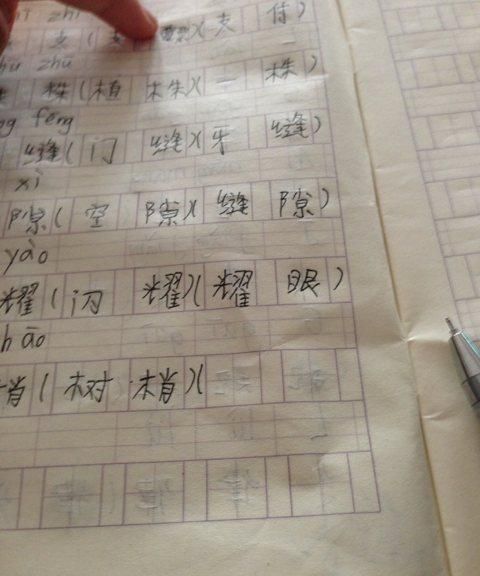 zhī
支(支 )(支 付)
zhū zhū
株(植 株)(一 株)
fèng
缝(门 缝)(牙 缝)
xì
隙(空 隙)(缝 隙)
yào
耀(闪 耀)(耀 眼)
shāo
梢(树 梢)(